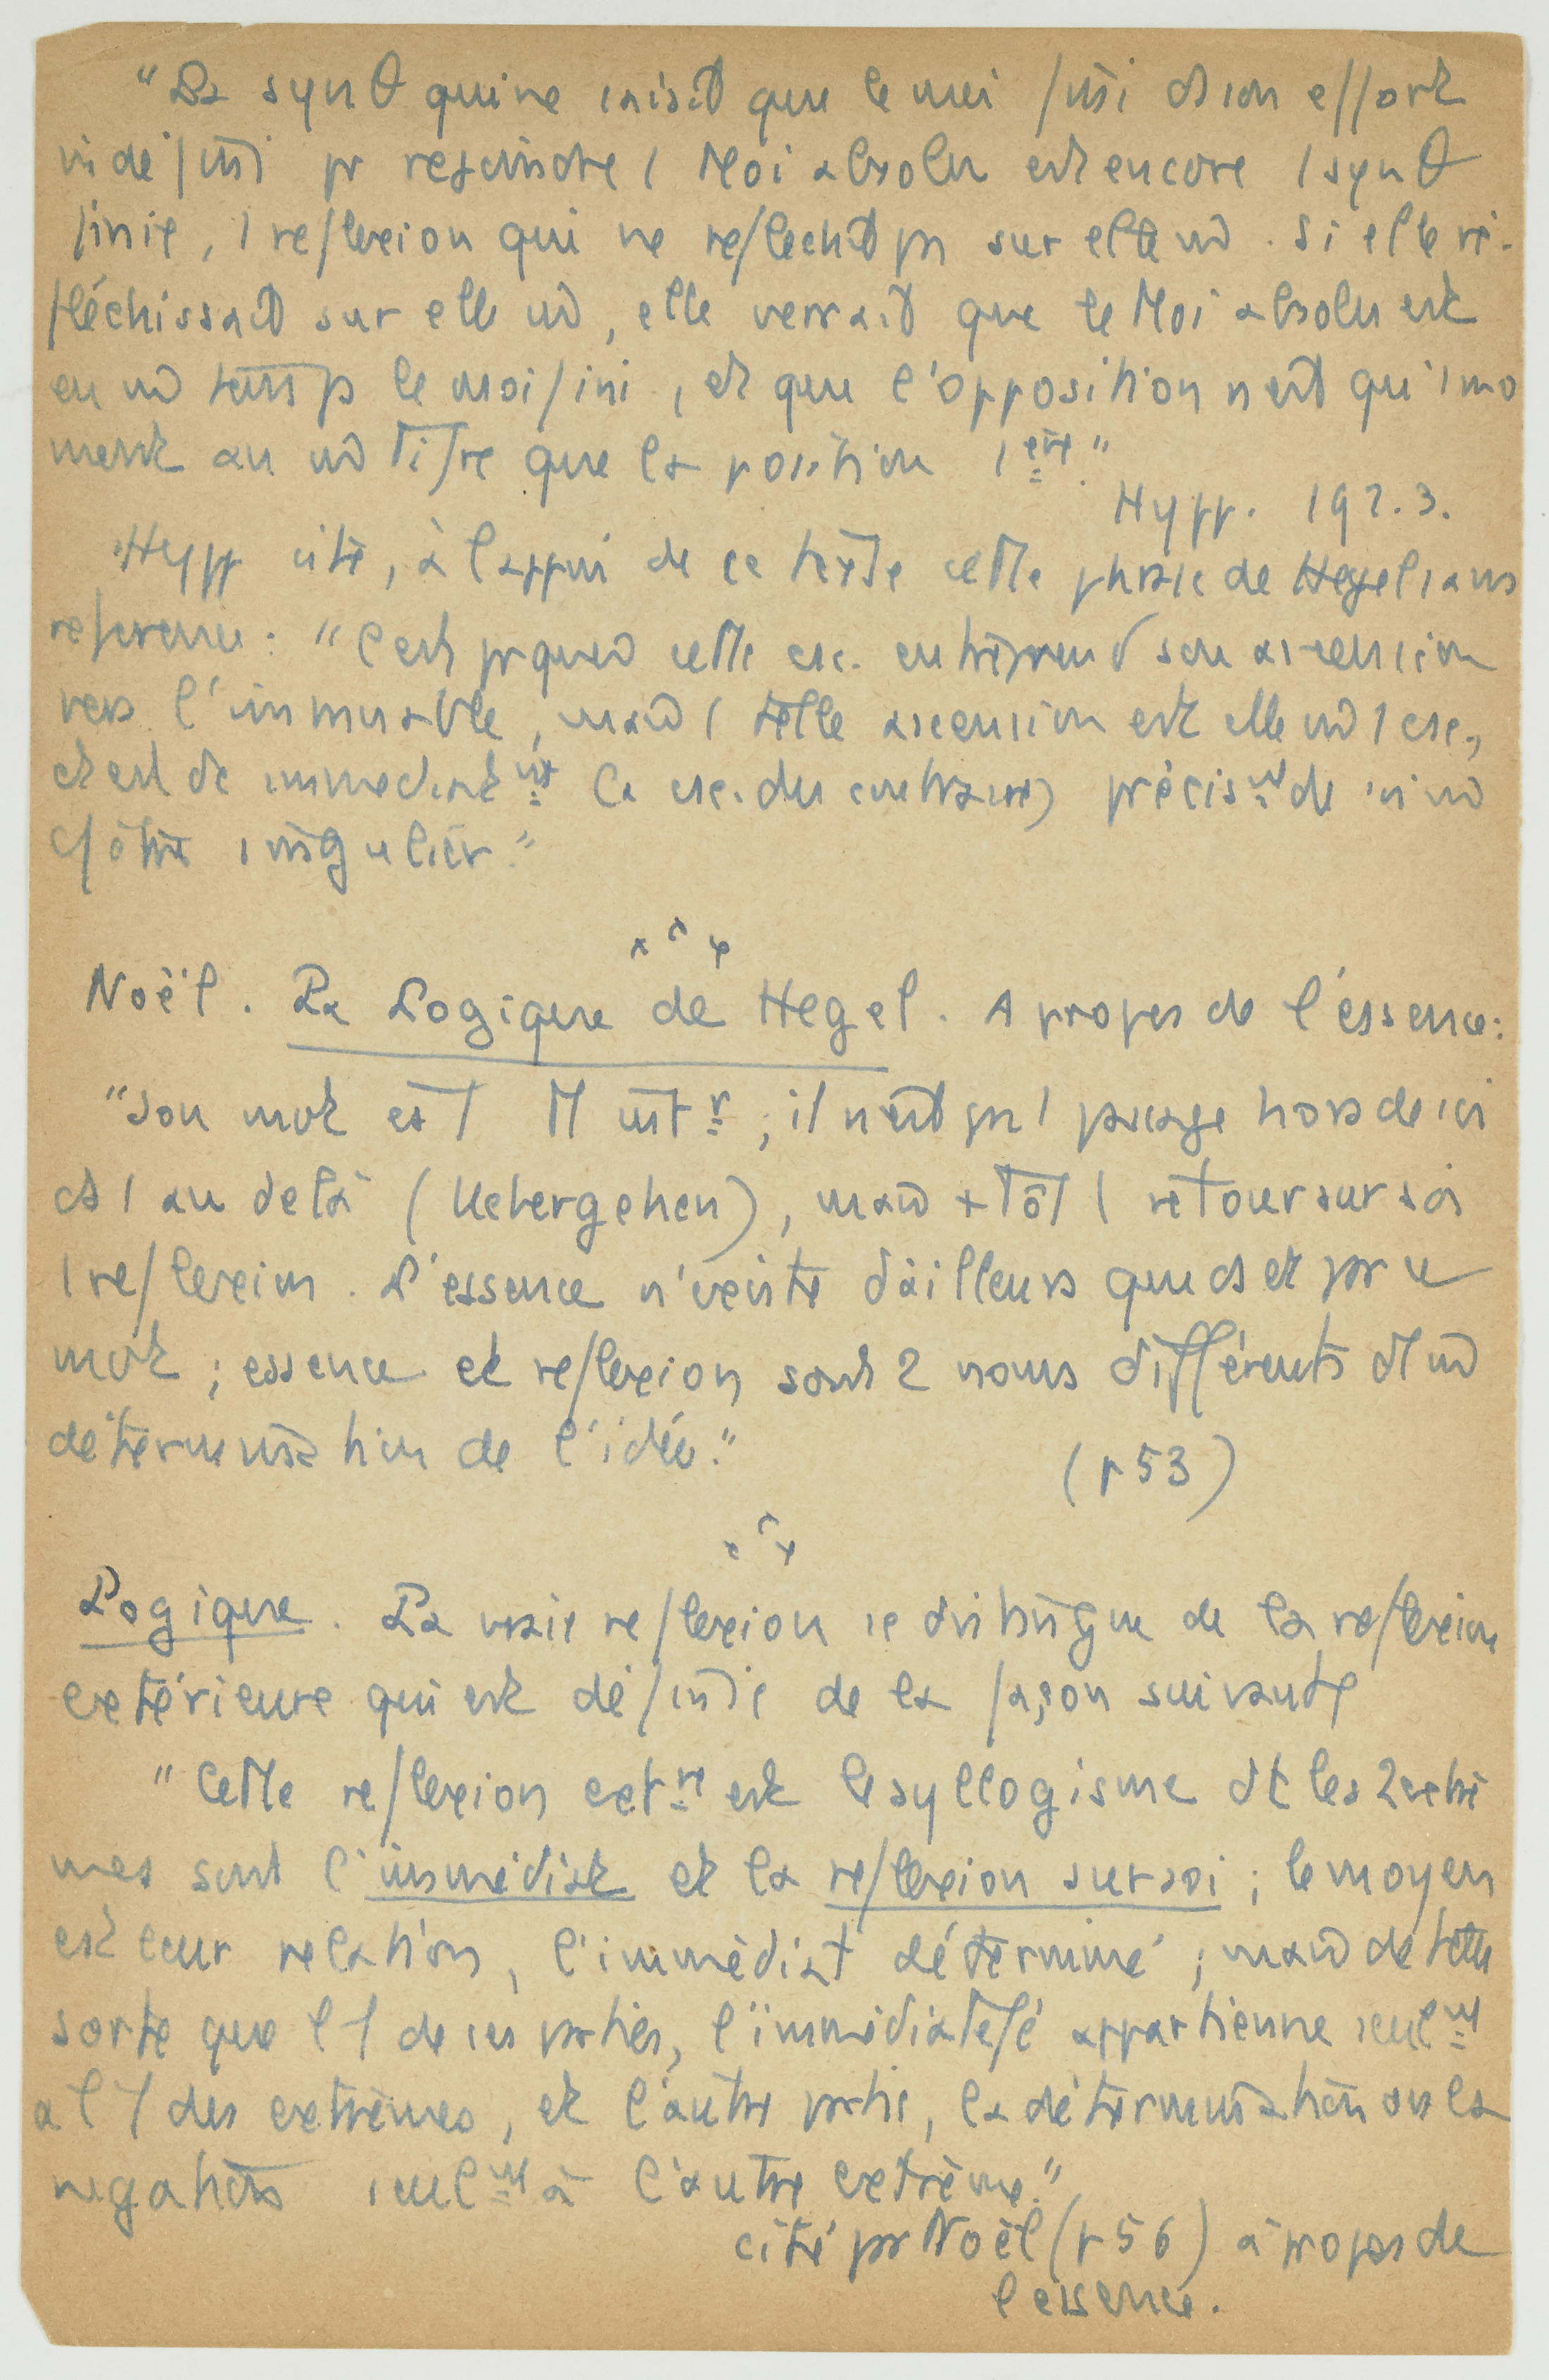 "La synθ qui ne saisit que le moi fini ds son effort
indéfini pr rejoindre l Moi absolu est encore 1 synθ
finie, 1 reflexion qui ne reflechit ps sur elle md. Si elle ré-
fléchissait sur elle md, elle verrait que le Moi absolu est
en md temps le moi fini, et que l'opposition n'est qu'1 mo
ment au md titre que la position 1ère."
Hypp. 192.3.
Hypp cite, à l'appui de ce texte cette phrase de Hegel sans
reference : "C'est prquoi cette csc. entreprend son ascension
vers l'immuable, mais 1 telle ascension est elle md 1 csc.,
et est dc immediatmt la csc. du contraire, précismt de soi md
c/ être singulier."
Noël. La Logique de Hegel. A propos de l'essence :
"Son mvt est tt intr ; il n'est ps 1 passage hors de soi
ds 1 au delà (Uebergehen), mais + tôt 1 retour sur soi
1 reflexion. L'essence n'existe d'ailleurs que ds et par ce
mvt ; essence et reflexion sont 2 noms différents d'1 md
détermination de l'idée."
(p 53)
Logique. La vraie reflexion se distingue de la reflexion
extérieure qui est définie de la façon suivante
"Cette reflexion extre est le syllogisme dt les 2 extrê
mes sont l'immédiat et la reflexion sur soi ; le moyen
est leur relation, l'immédiat déterminé ; mais de telle
sorte que l'1 de ces parties, l'immédiateté appartienne seulmt
a l'1 des extrêmes, et l'autre partie, la détermination ou la
negation seulmt à l'autre extrême."
cité par Noël (p 56) à propos de
l'essence.